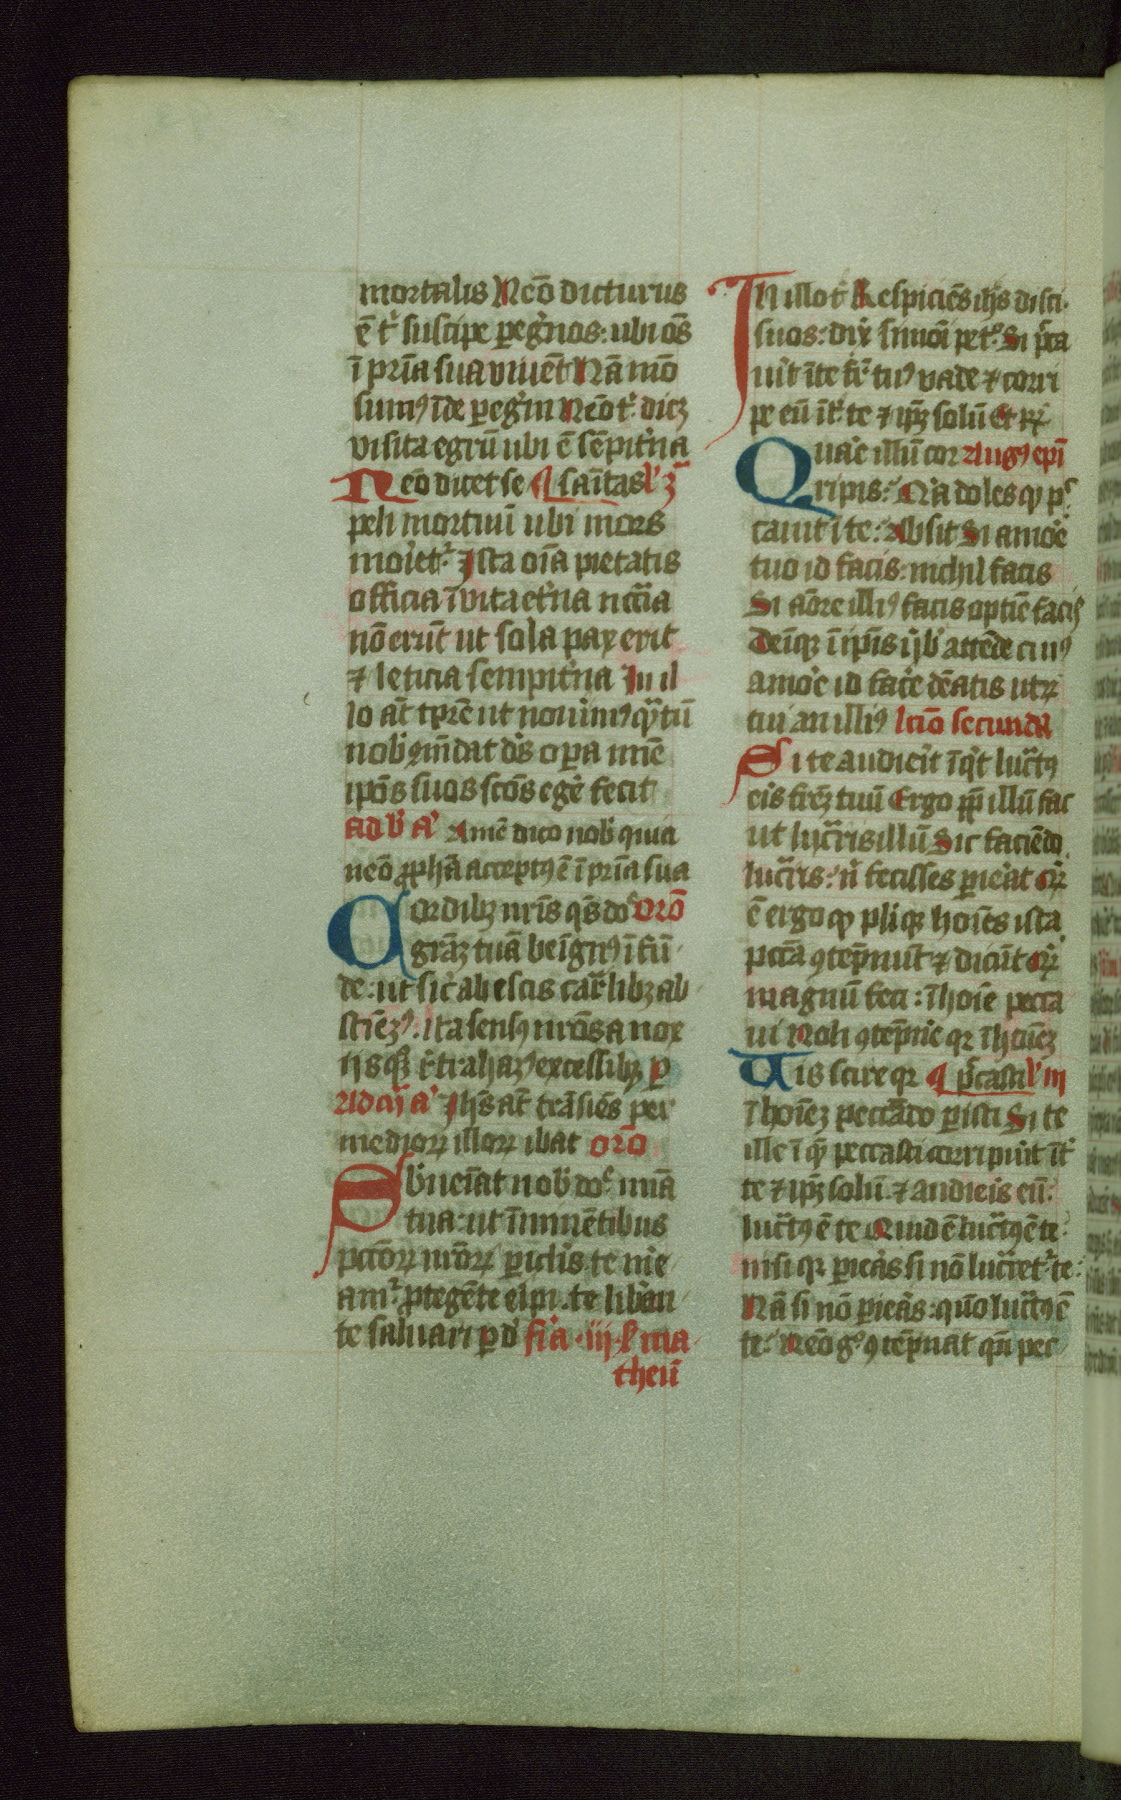 mortalis Neō dicturus
ē tͥ suscipe pegͥnos: ubi oēs
ī pr̄ia sua viuēt Nā mō
sumꝰ īde pegͥni Neō tͥ dicꝫ
visita egrū ubi ē sēpitͥna
Neō dicet se ¶ sāitas lͥ ꝫͣ
peli mortuū ubi mors
moriet᷑ Ista oīa pietatis
officia ī vita et̄na nc̄cͥia
nō erūt ut sola pax erit
⁊ leticia sempitͥna In il
lo at̄ tp̄re ut nouimꝰ qͣtū
nob̾ cōm̄dat dn̄s opa mīe
ip̄os suos sc̄os egē fecit
ad b̄ a᷑ Amē dico nob̾ quia
neō ꝓpha acceptꝰ ē ī pr̄ia sua
Cordibꝫ nr̄is qs̄ do᷑ orō
grāꝫ tuā beīgnꝰ īfū
de: ut sic̾ ab escis carl̄ibꝫ ab
stiēꝫꝰ: ita sensꝰ nr̄os a nox
iis qͦꝫ r̄trahaꝫꝰ excessibꝫ ꝑ
Ad cij a᷑ Ihs̄ at̄ trāsiēs per
mediorꝝ illorꝝ ibat orō
Sb̾ueīat nob̾ do᷑ mīa
tua: ut īminētibus
pctorꝝ nr̄orꝝ piclis te me
am᷑ ꝓtegēte eipi. te libāu
te saluari p d᷑ fīa · iij · s̄ ma
theū
In illo t᷑ Respiciēs ihs̄ disci·
suos: dix̄ simoī pet᷑ Si pcca
uͥit ī te fr̄ tuꝰ vade ⁊ corri
pe eū īt᷑ te ⁊ ipꝫ solū Et rͥ
Quare illū cor Augꝰ epī
ripis: Na doles qꝫ pc
cauit ī te: Absit Si amoē
tuo id facis: nichil facis
Si aōre illiꝰ facis optīe facis
Deīqꝫ ī ip̄is v̄b̾ attēde ciuꝰ
amoē id facē dēatis utꝝ
tui an illiꝰ lcīo secunda
Si te audierͥt īqͥt lucͣtꝰ
eis frēꝫ tuū Ergo ꝓp̄ illū fac
ut lucͣris illū Sic faciēdo
lucͣris: nͥ fecisses pieͣt qꝛ
ē ergo qꝫ pliqꝫ hoīes ista
pctā ꝯtēpnūt ⁊ dicūt qꝛ
magnū feci: ī hoīe pecca
ui Noli ꝯtēpnē qꝛ ī hoīeꝫ
Vis scire qꝛ ¶ p̄casti lͥ iij
ī hoīeꝫ peccādo pisti Si te
ille ī qͦ peccasti corripuit īt᷑
te ⁊ ipꝫ solū ⁊ audieis eū:
lucͣtꝰ ē te Quid ē lucͣtꝰ ē te
nisi qꝛ pieās si nō lucͣret᷑ te:
Nā si nō pieās: quō lucͣtꝰ ē
te: Neō gͦ ꝯtēpnat qn̄ pec